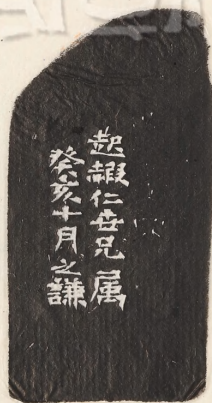 起赮仁世兄属
癸亥十月之謙